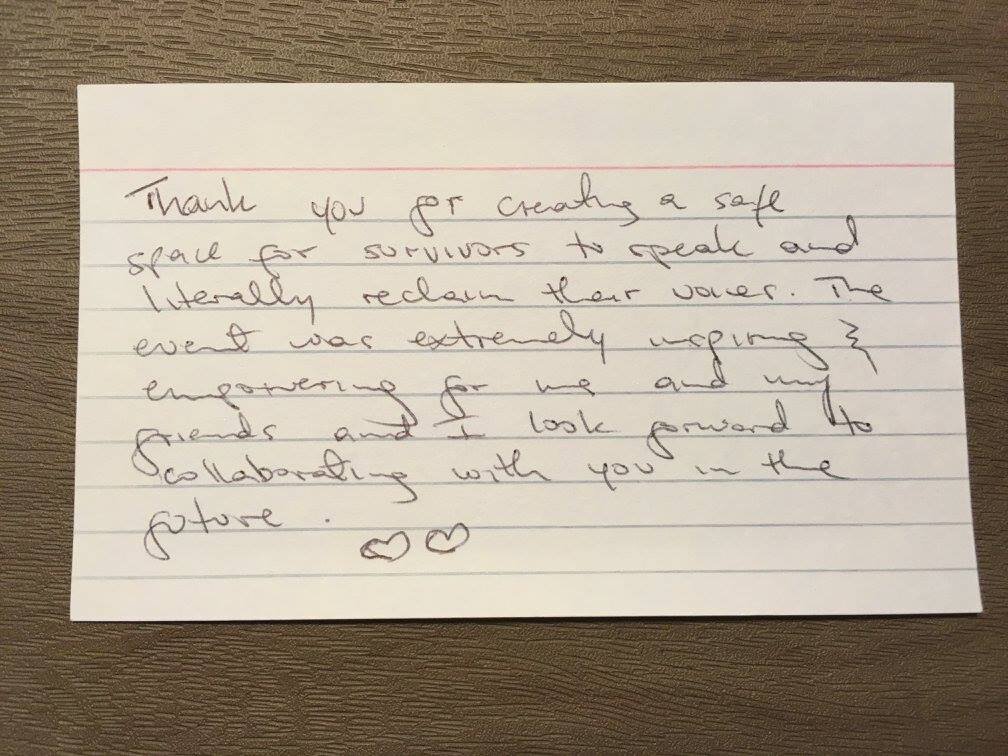 Thank you for creating a safe
space for survivors to speak and
literally reclaim their voices. The
event was extremely inspiring &
empowering for me and my
friends and I look forward to
collaborating with you in the
future.